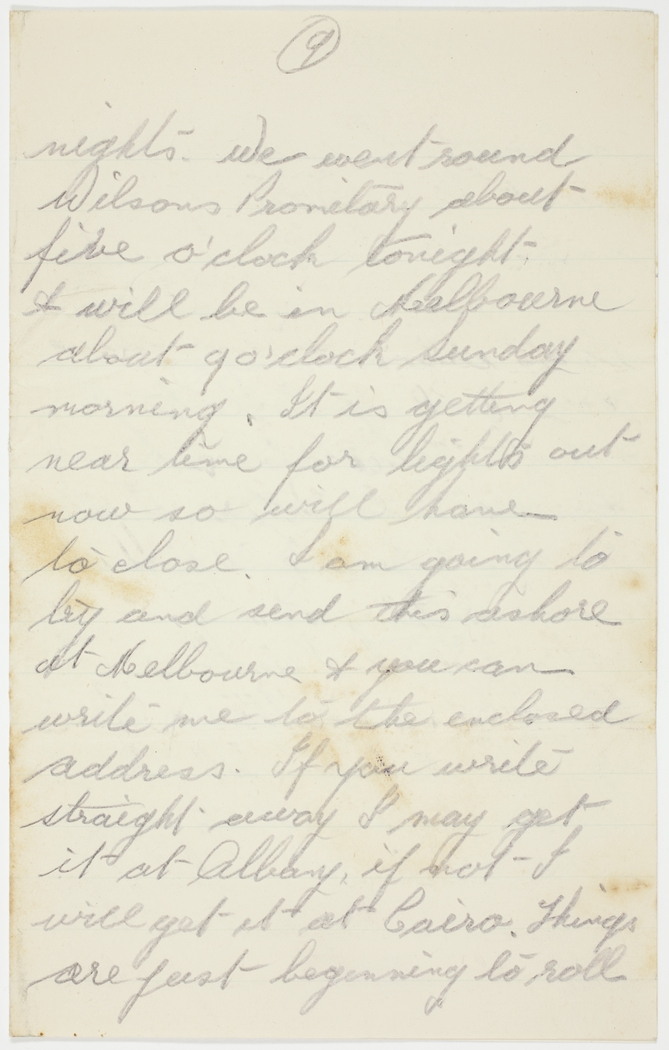 9
nights. We went round
Wilsons Promitary about
five o'clock tonight.
& will be in Melbourne
about 9 o'clock Sunday
morning. It is getting
near time for lights out
now so will have
to close. I am going to
try and send this ashore
at Melbourne & you can
write me to the enclosed
address. If you write
straight away I may get
it at Albany, if not I
will get it at Cairo. Things
are just beginning to roll